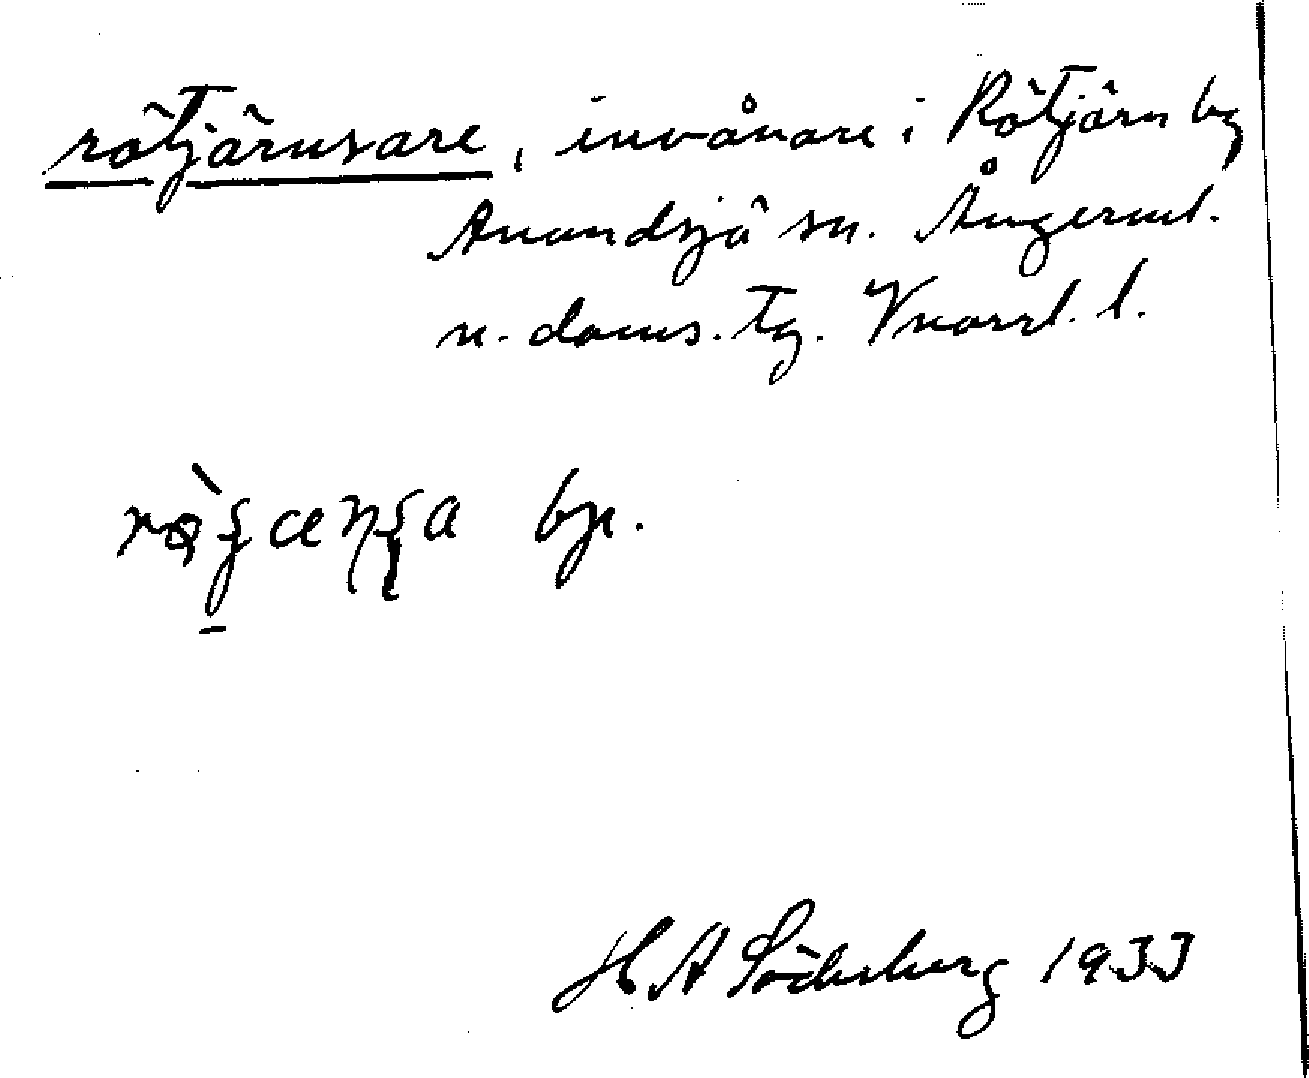 rötjärnsare, invånare i Rötjärn by
Anundsjö sn. Ångerml.
n. doms. tg. Vnorrl. l.
bp.
H A Söderberg 1933